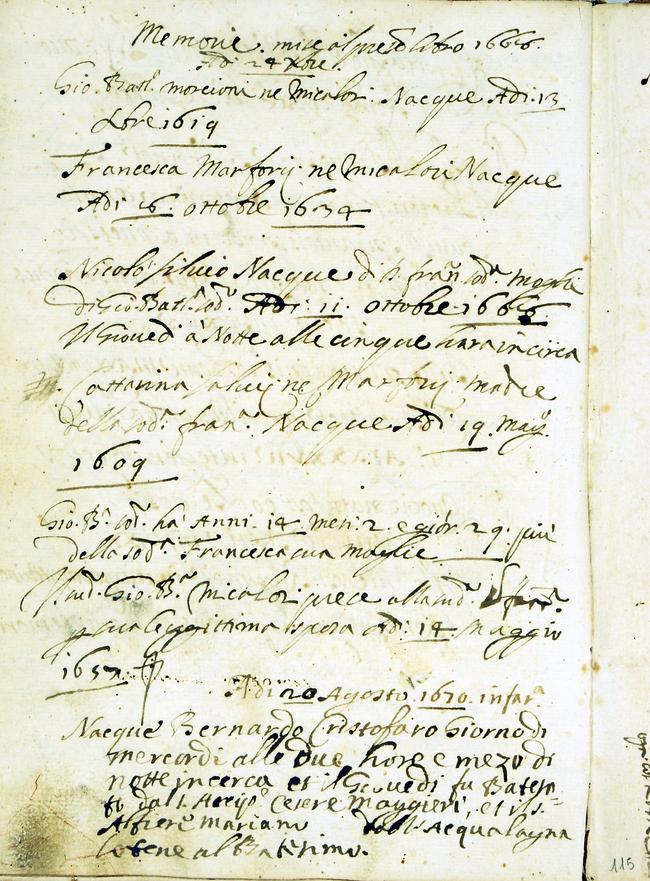 Memorie. mise al preste libro 1666.
Adi 24 Xbre.
Gio. Batt. morcioni ne Micalori. Nacque Adi. 13
Xbre 1619
Francesca Marforij ne Micalori Nacque
Adi 6 ottobre 1634
Nicolò Silvio Nacque di D. Franc. sod. moglie
di Gio. Batt. sod. Adi. 11. ottobre. 1666
Il Giovedi à Notte alle cinque hora in circa
Cattarina Salvij ne Marforij. madre
della sod. Franc. Nacque Adi 19. Mag.
1609
Gio. B. sod. ha Anni. 14 mesi. 2. e gior. 29. più
della sod. Francesca sua moglie
Il sud. Gio. B. Micalori prese alla sud. Fran.
p sua legittima sposa Adi. 14. Maggio
1657
Adi 20 Agosto. 1670. in far.
Nacque Bernardo Cristofaro Giorno di
mercordi alle due hore e mezo di
notte in cerca et il Giovedi fu Batem
to dall. Arcip. Cesere Maugieri, et il s.
Alfiere Mariano dell'Acqualagna
lo tene al Batesimo.
115